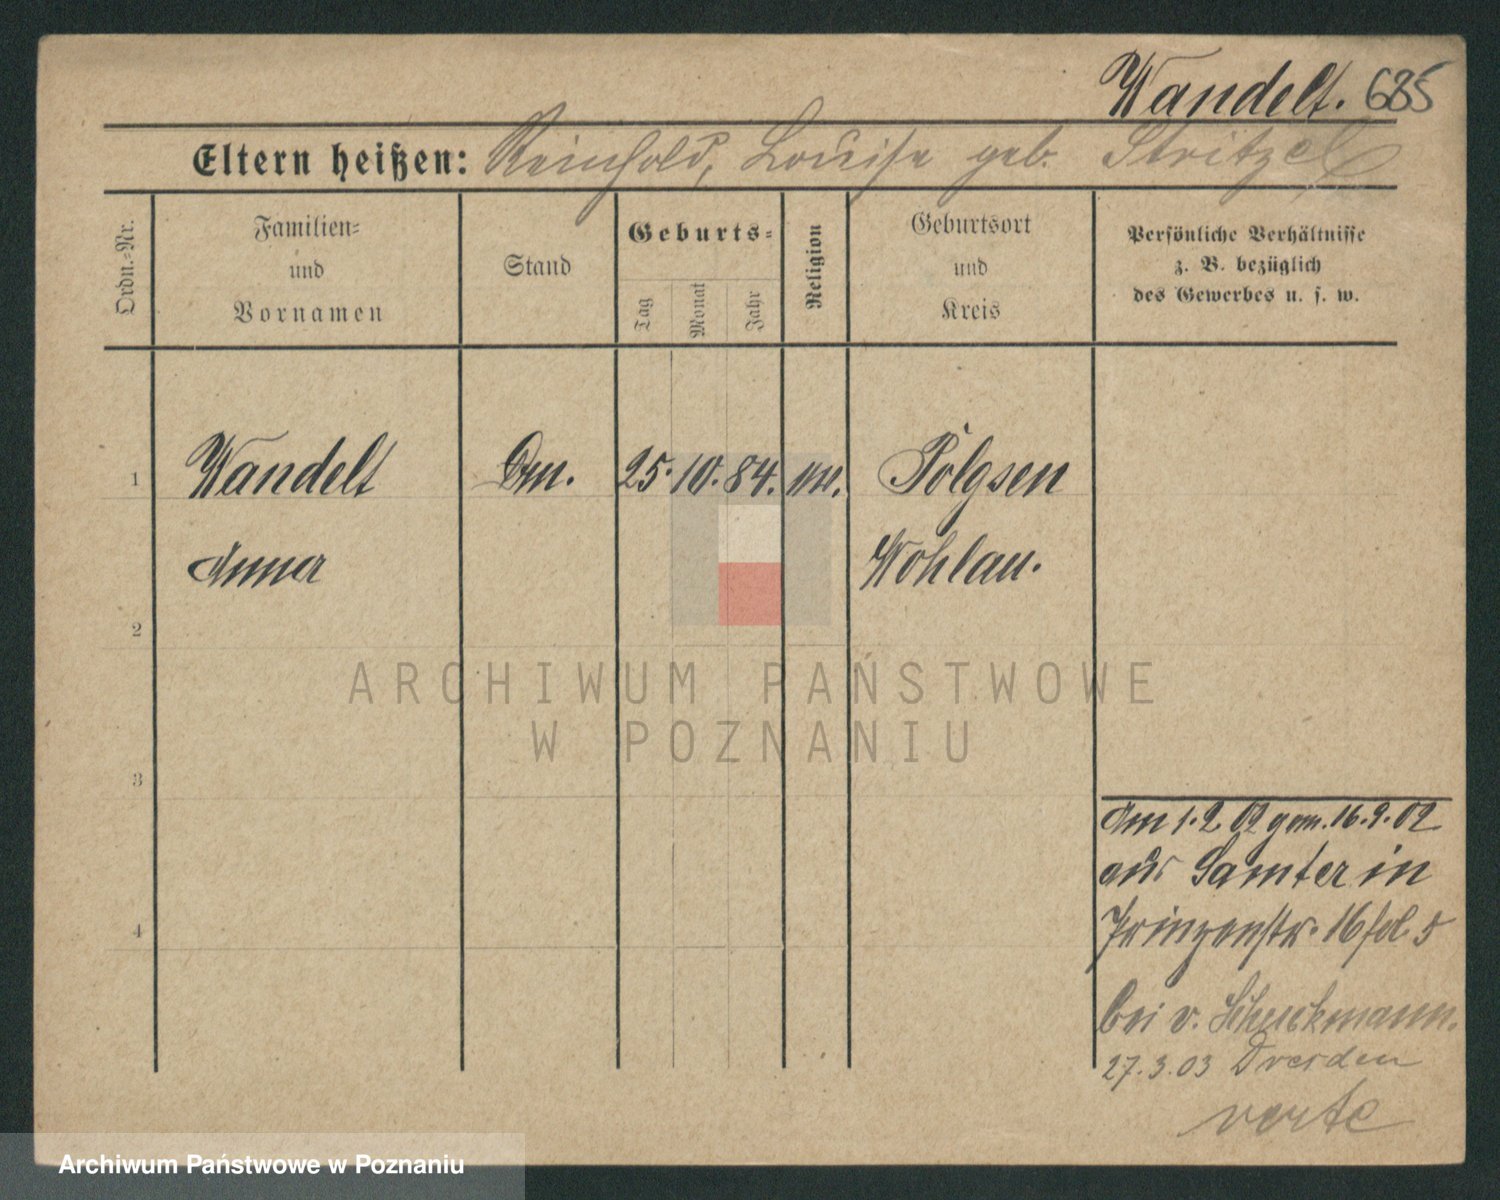 Wandelt. 685
Eltern heißen: Reinhold, Louise geb. Stritzel
Ordn.-Nr.
Familien-
und
Vornamen
Stand
Geburts-
Tag
Monat
Jahr
Religion
Geburtsort
und
Kreis
Persönliche Verhältnisse
z. B. bezüglich
des Gewerbes u. s. w.
1 Wandelt 25. 10. 84. Polgsen
Anna Wohlau.
2
ARCHIWUM PAŃSTWOWE
W POZNANIU
3
Am 1.2.02 gem. 16.9.02
aus Samter in
4 Prinzenstr. 16
bei v. Schuckmann.
27.3.03 Dresden
verte
Archiwum Państwowe w Poznaniu